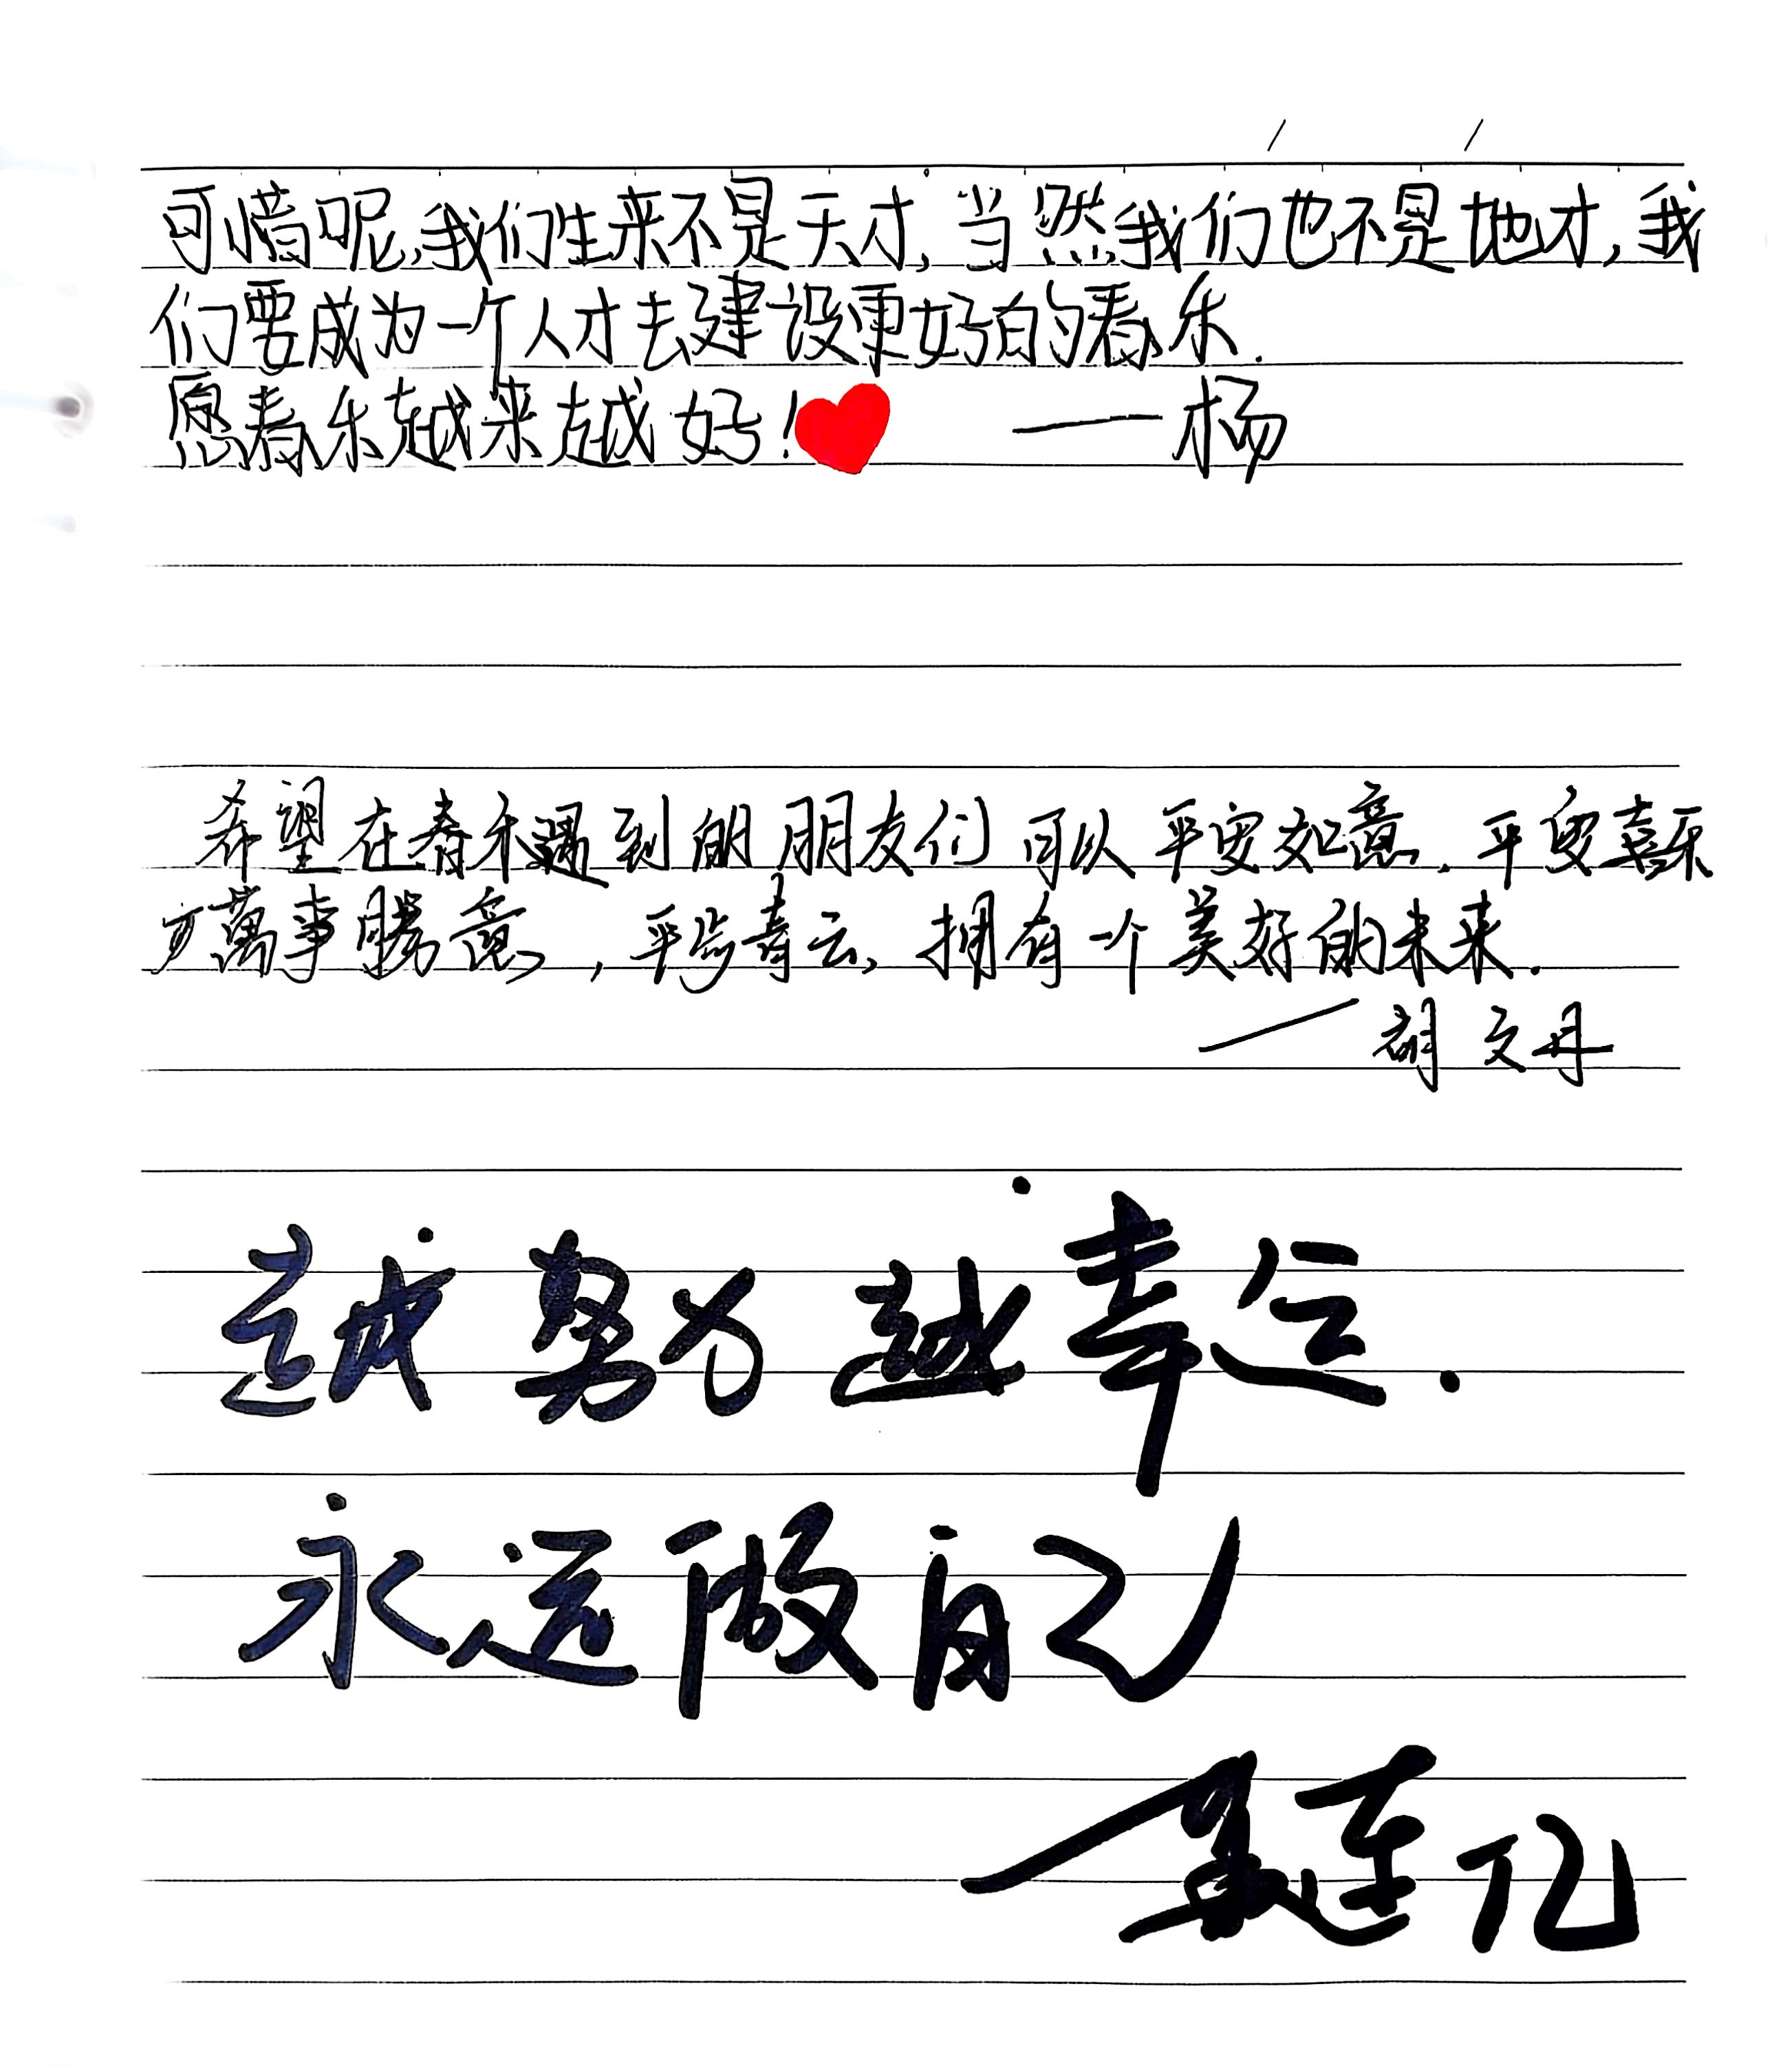 可惜呢，我们生来不是天才，当然我们也不是地才，我
们要成为一个人才去建设更好的春乐.
愿春乐越来越好！ ——杨
希望在春乐遇到的朋友们可以平安如意，平安喜乐
萬事勝意，平步青云，拥有一个美好的未来.
——胡文丹
越努力越幸运.
永远做自己
——连亿